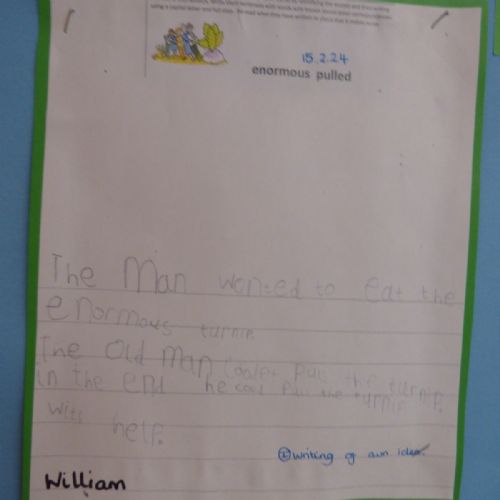 15.2.24
enormous pulled
The Man wonted to eat the
enormous turnip.
The Old Man Coolet Pull the turnip.
in the end he cood Pull the turnip
with help.
writing of own idea.
William